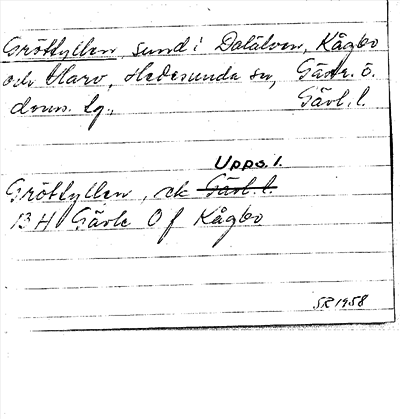 Gröttyllen, sund i Dalälven, Kågbo
och Maro, Hedesunda sn, Gästr. ö.
doms. tg., Gävl. l.
Upps. l.
Gröttyllen, ek Gävl. l.
13 H Gävle 0 f Kågbo
SR 1958